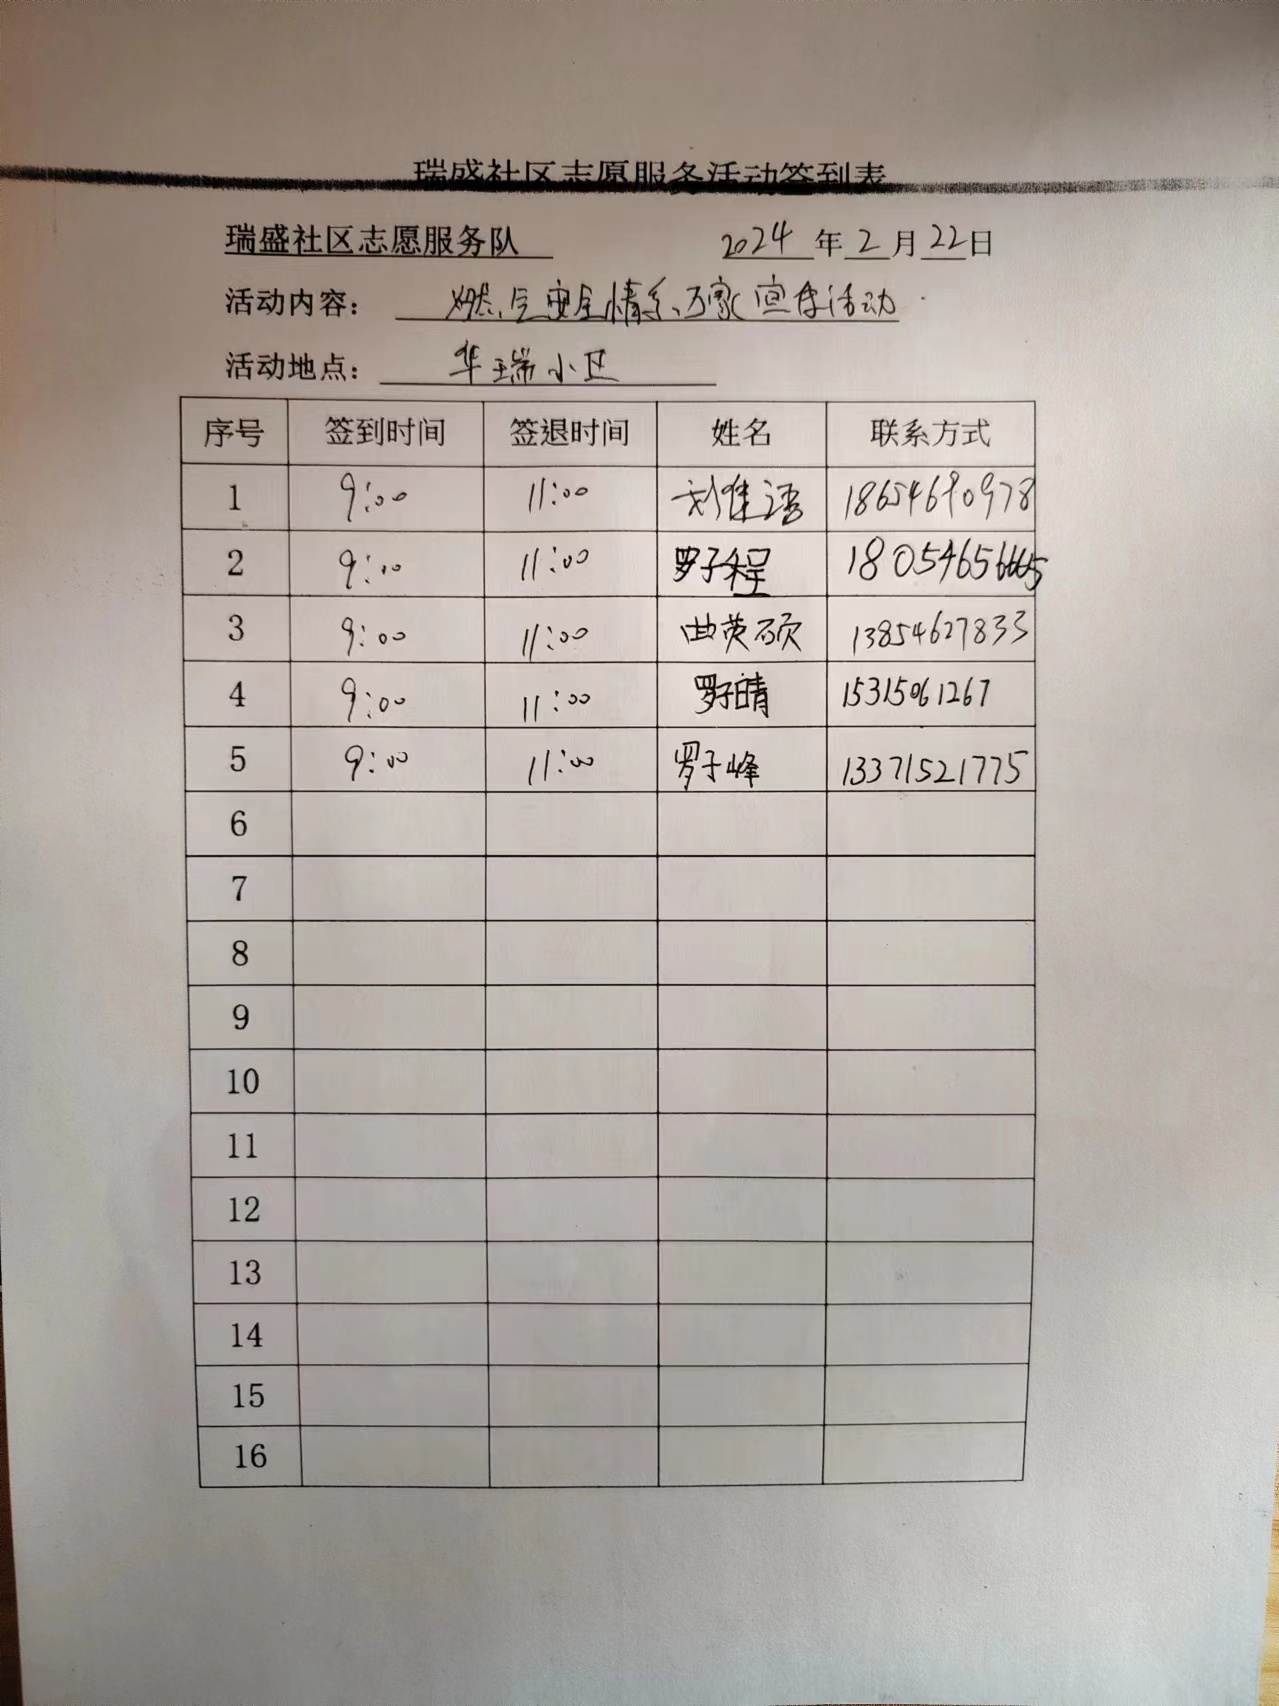 瑞盛社区志愿服务活动签到表
瑞盛社区志愿服务队 2024 年 2 月 22 日
活动内容： 燃气安全情系万家宣传活动
活动地点： 华瑞小区
序号 签到时间 签退时间 姓名 联系方式
1 9:00 11:00 刘佳语 18654690978
2 9:00 11:00 罗子程
3 9:00 11:00 曲英硕 13854627833
4 9:00 11:00 罗子晴 15315061267
5 9:00 11:00 罗子峰 13371521775
6
7
8
9
10
11
12
13
14
15
16